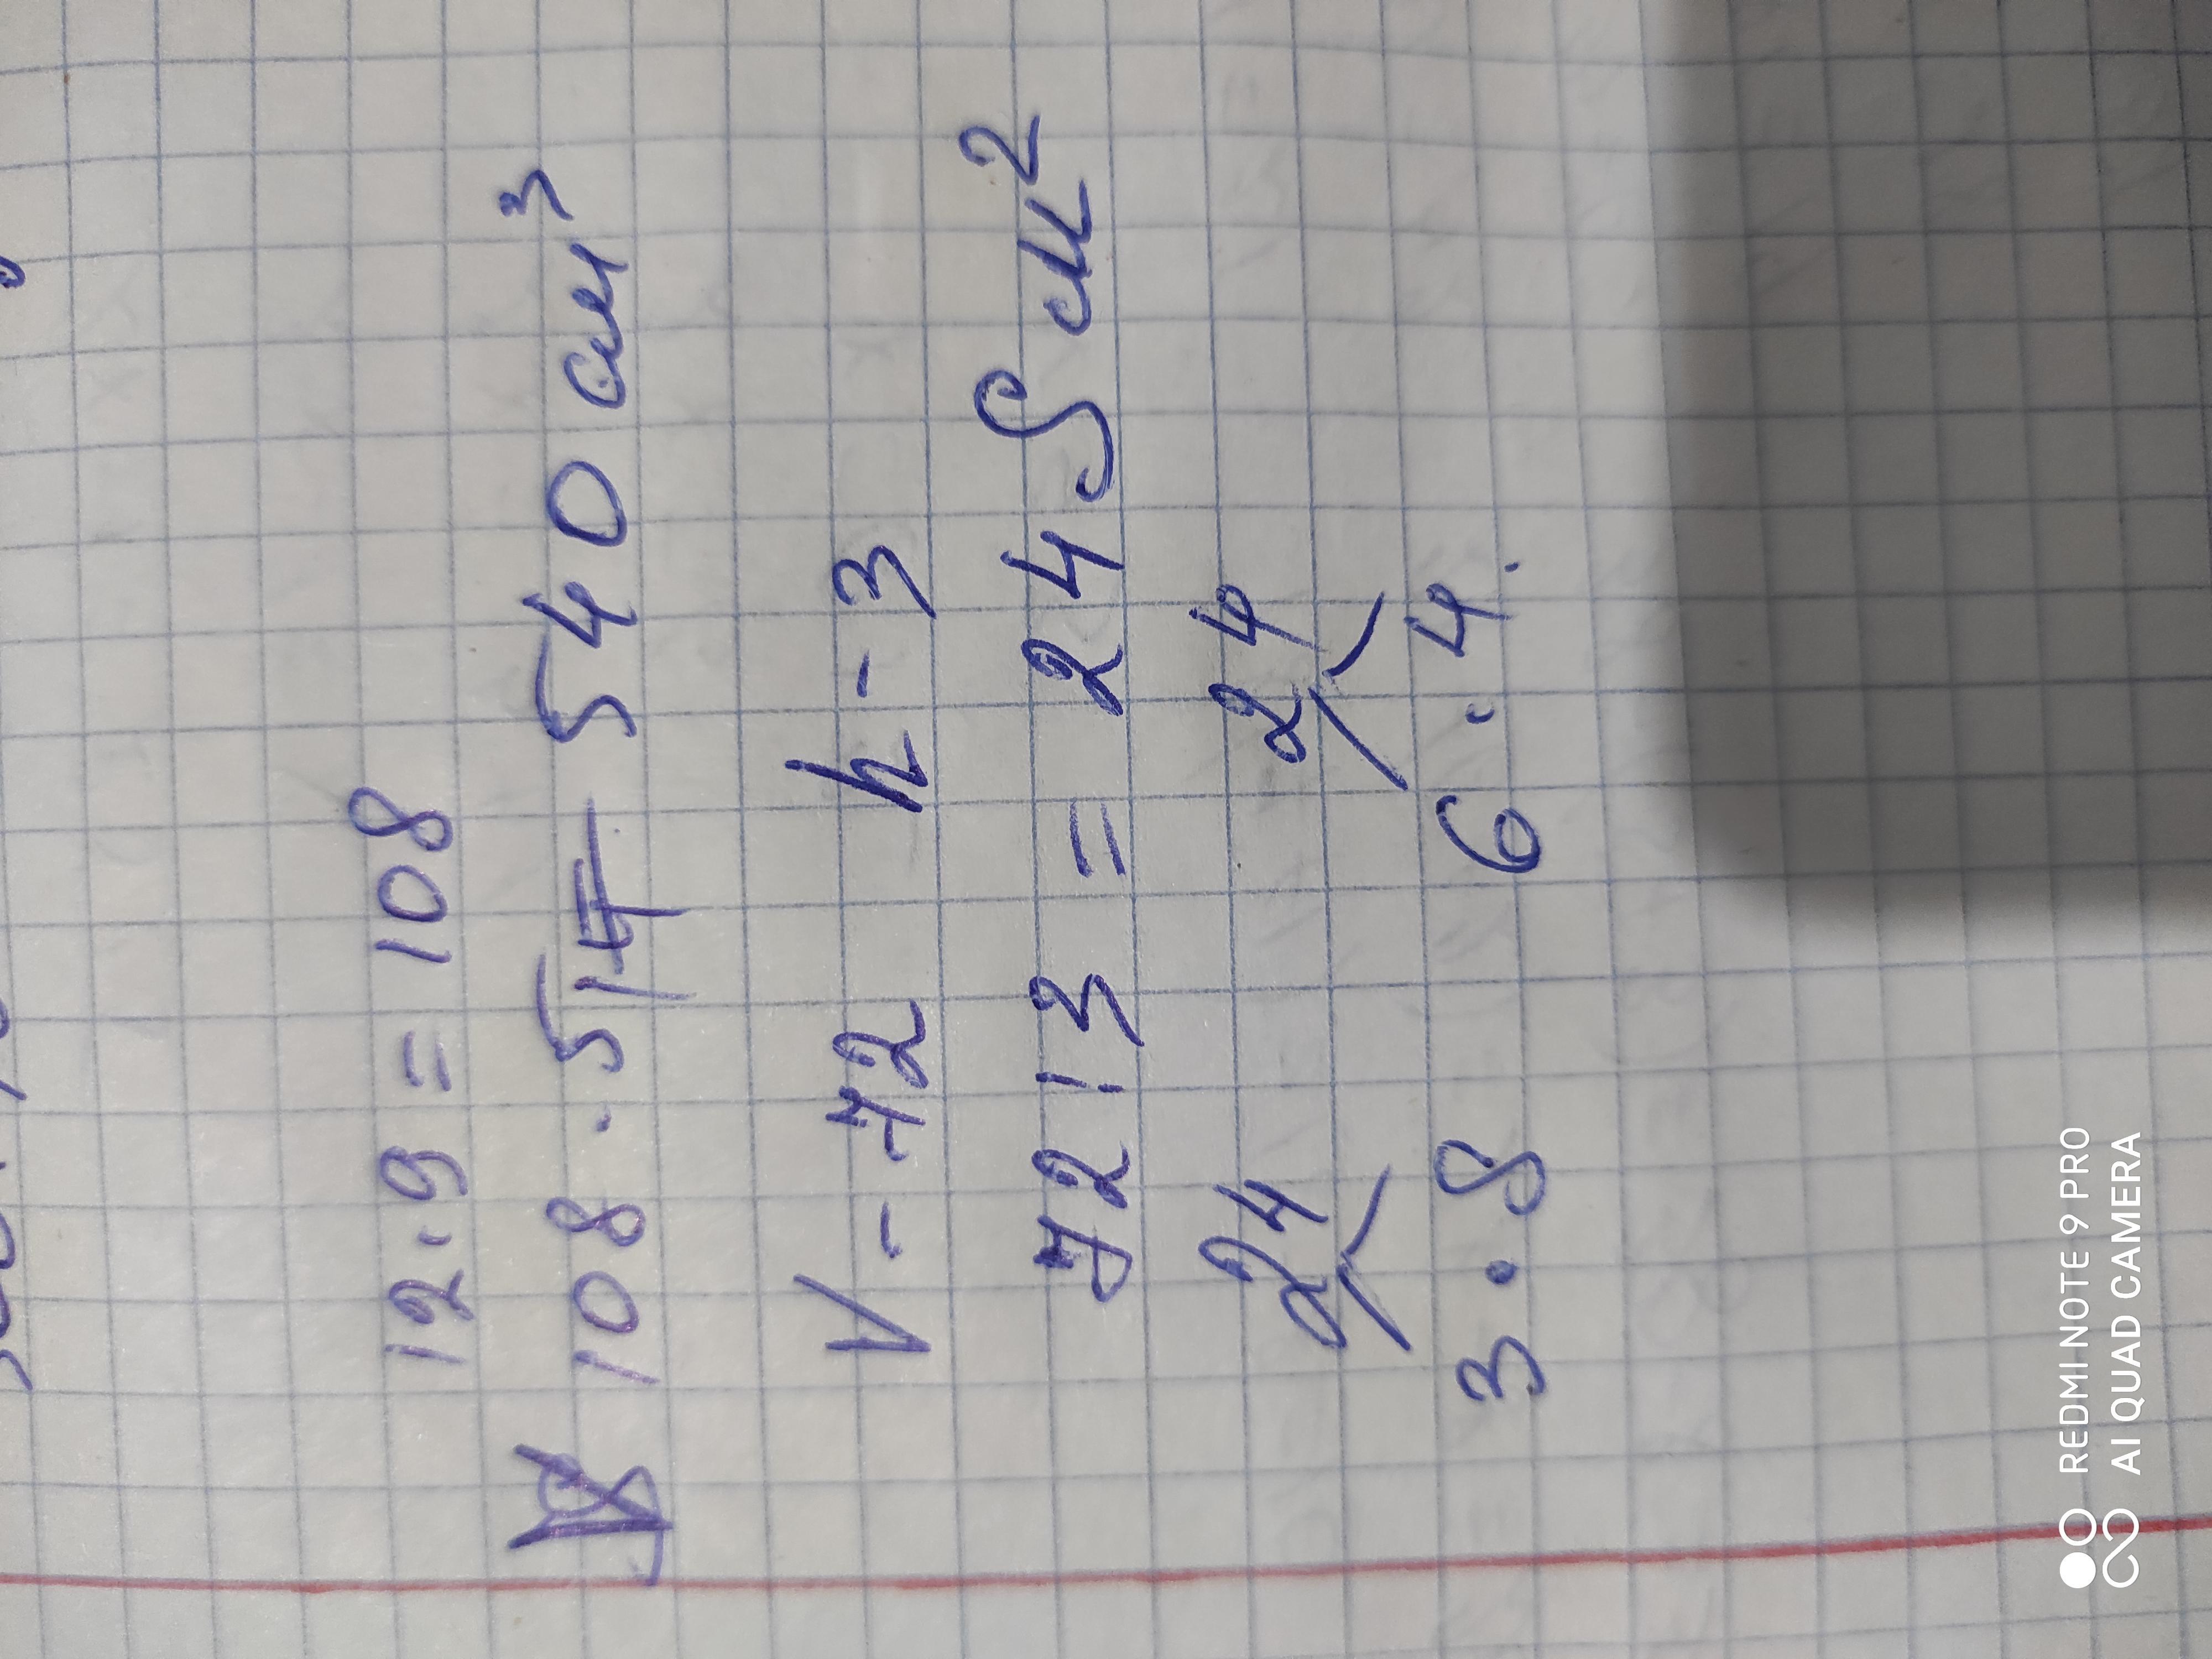 12·9=108
108·5= 540 см³
V-72 h-3
72:3 = 24 S см²
24 24
3·8 6·4.
REDMI NOTE 9 PRO
AI QUAD CAMERA